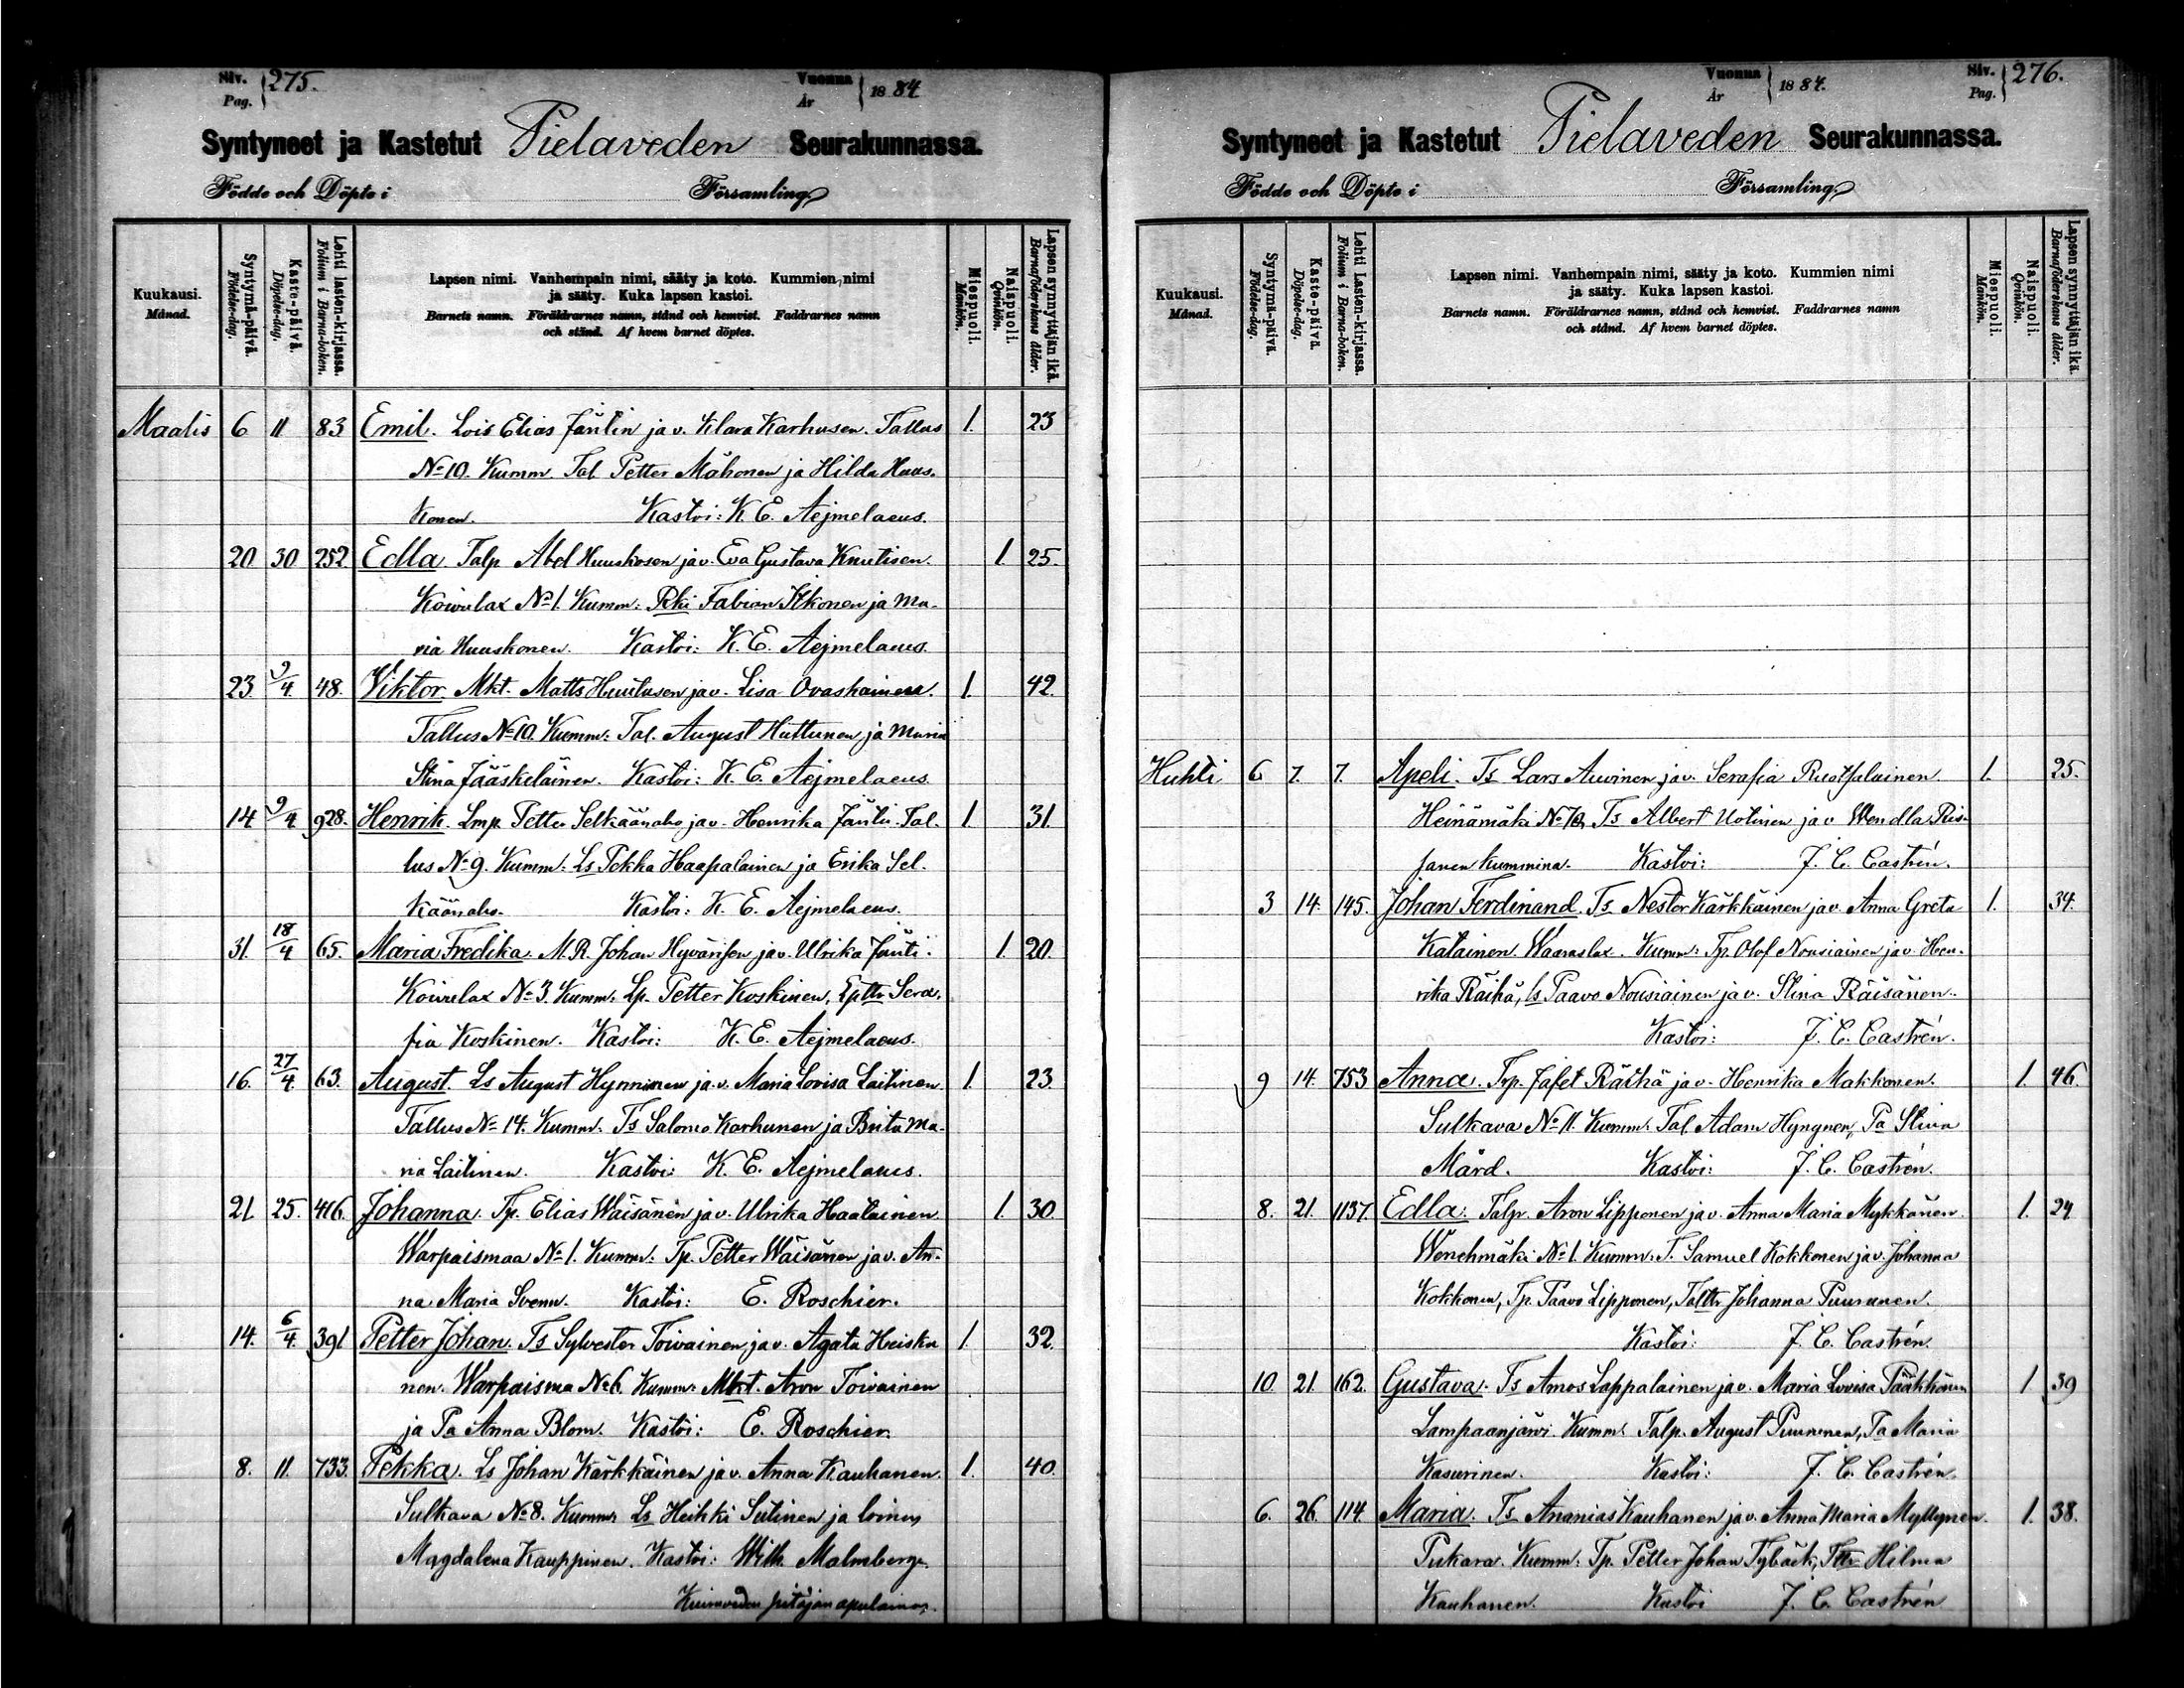 Siv. Pag. 275.
Vuonna År 1884
Syntyneet ja Kastetut Pielaveden Seurakunnassa.
Födde och Döpte i Församling
Kuukausi. Månad.
Syntymä-päivä. Födelse-dag.
Kaste-päivä. Döpelse-dag.
Lehti lasten-kirjassa. Folium i Barna-boken.
Lapsen nimi. Vanhempain nimi, sääty ja koto. Kummien nimi
ja sääty. Kuka lapsen kastoi.
Barnets namn. Föräldrarnes namn, stånd och hemvist. Faddrarnes namn
och stånd. Af hvem barnet döptes.
Miespuoli. Mankön.
Naispuoli. Qvinkön.
Lapsen synnyttäjän ikä. Barnaföderskans ålder.
Maalis 6 11 83 Emil. Lois Elias Jäntin ja v. Klara Karhusen. Tallus 1. 23
No 10. Kumm. Tal. Petter Mähönen ja Hilda Huus-
konen. Kastoi: K. E. Aejmelaeus.
20 30 252 Edla Talp Abel Huuskosen ja v. Eva Gustava Knutisen. 1. 25.
Koivulax No 1. Kumm: Rki Fabian Itkonen ja Ma-
ria Huuskonen. Kastoi: K. E. Aejmelaeus.
23. 9/4 48. Viktor Mkt. Matts Huttusen ja v. Lisa Ovaskainen. 1. 42.
Tallus No 10. Kumm: Tal. August Huttunen ja Maria
Stina Jääskeläinen. Kastoi: K. E. Aejmelaeus
14 9/4 928. Henrik. Lmp. Petter Selkäänaho ja v. Henrika Jäntti. Tal- 1. 31.
lus No 9. Kumm: Ls Pekka Haapalainen ja Erika Sel-
käänaho. Kastoi: K. E. Aejmelaeus.
31. 18/4 65. Maria Fredika. M.R. Johan Hyvärisen ja v. Ulrika Jäntti. 1. 20.
Koivulax No 3. Kumm: Lp. Petter Koskinen, Lpttr Sera-
fia Koskinen. Kastoi: K. E. Aejmelaeus.
16. 27/4 63. August. Ls August Hynninen ja v. Maria Lovisa Laitinen 1. 23
Tallus No 14. Kumm. Ts Salomo Karhunen ja Brita Ma-
ria Laitinen. Kastoi: K. E. Aejmelaeus.
21 25. 416. Johanna. Tp. Elias Wäisänen ja v. Ulrika Haatainen 1. 30.
Warpaismaa No 1. Kumm: Tp. Petter Wäisänen ja v. An-
na Maria Svenn. Kastoi: E. Roschier.
14. 6/4 391 Petter Johan. Ts Sylvester Toivainen ja v. Agata Heiska 1. 32.
nen. Warpaisma No 6 Kumm: Mkt. Aron Toivainen
ja Pa Anna Blom. Kastoi: E. Roschier.
8. 11. 733. Pekka. Ls Johan Kärkkäinen ja v. Anna Kauhanen. 1. 40.
Sulkava No 8. Kumm: Ls Heikki Sutinen ja loinen
Magdalena Kauppinen. Kastoi: Wilh. Malmberg.
pitäjän apulainen.
Vuonna År 1884.
Siv. Pag. 276.
Syntyneet ja Kastetut Pielaveden Seurakunnassa.
Födde och Döpte i Församling
Kuukausi. Månad.
Syntymä-päivä. Födelse-dag.
Kaste-päivä. Döpelse-dag.
Lehti Lasten-kirjassa. Folium i Barna-boken.
Lapsen nimi. Vanhempain nimi, sääty ja koto. Kummien nimi
ja sääty. Kuka lapsen kastoi.
Barnets namn. Föräldrarnes namn, stånd och hemvist. Faddrarnes namn
och stånd. Af hvem barnet döptes.
Miespuoli. Mankön.
Naispuoli. Qvinkön.
Lapsen synnyttäjän ikä. Barnaföderskans ålder.
Huhti 6 7. 7. Apeli. Ts Lars Auvinen ja v. Serafia Ruotsalainen 1. 25.
Heinämäki No 10, Ts Albert Uotinen ja v Wendla Pii-
panen kummina. Kastoi: J. C. Castrén.
3 14. 145. Johan Ferdinand. Ts Nestor Kärkkäinen ja v. Anna Greta 1. 34.
Katainen. Waaraslax. Kumm: Tp. Olof Nousiainen ja v. Hen-
rika Räihä, ls Paavo Nousiainen ja v. Stina Räisänen.
Kastoi: J. C. Castrén.
9 14. 753 Anna. Tp. Jafet Räihä ja v. Henrika Makkonen. 1. 46.
Sulkava No 11. Kumm: Tal. Adam Hyngnen, Pa Stina
Mård. Kastoi: J. C. Castrén.
8. 21. 1137. Edla. Talp. Aron Lipponen ja v. Anna Maria Mykkänen. 1. 24
Wenehmäki No 1. Kumm: T. Samuel Kokkonen ja v. Johanna
Kokkonen, Tp. Paavo Lipponen, Talttr Johanna Puurunen.
Kastoi: J. C. Castrén.
10. 21. 162. Gustava. Ts Amos Lappalainen ja v. Maria Lovisa Pääkkönen 1 39
Lampaanjärvi. Kumm: Talp. August Puurunen, Pa Maria
Kasurinen. Kastoi: J. C. Castrén.
6. 26. 114. Maria. Ts Ananias Kauhanen ja v. Anna Maria Myllynen. 1. 38.
Pukara. Kumm: Tp. Petter Johan Tybäck, Tttr Hilma
Kauhanen. Kastoi J. C. Castrén